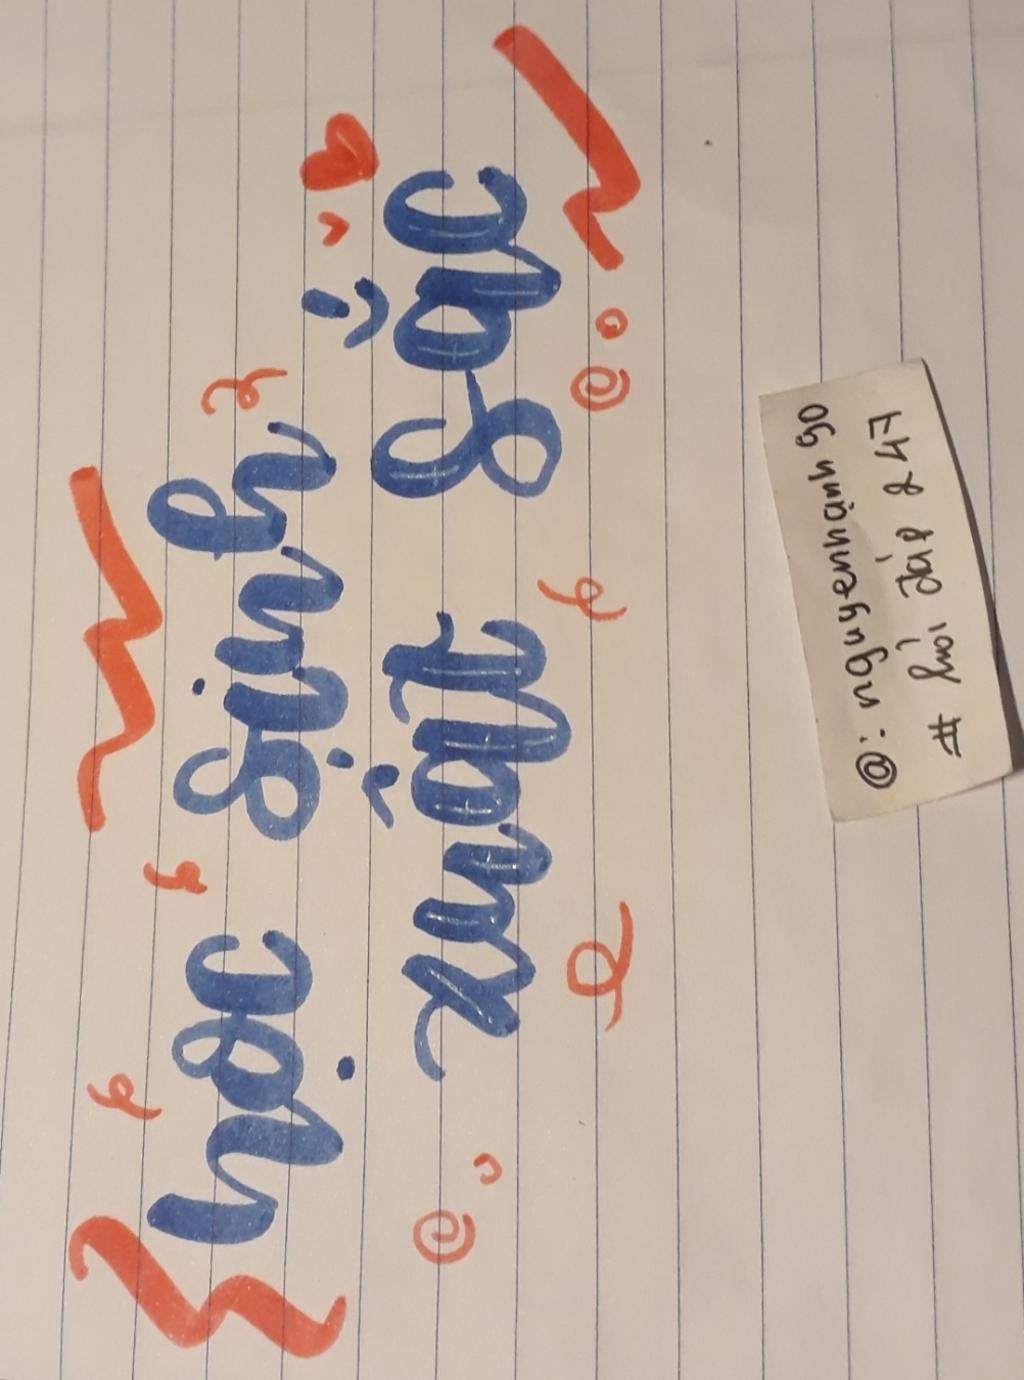 học sinh
xuất sắc
# Hỏi đáp 247